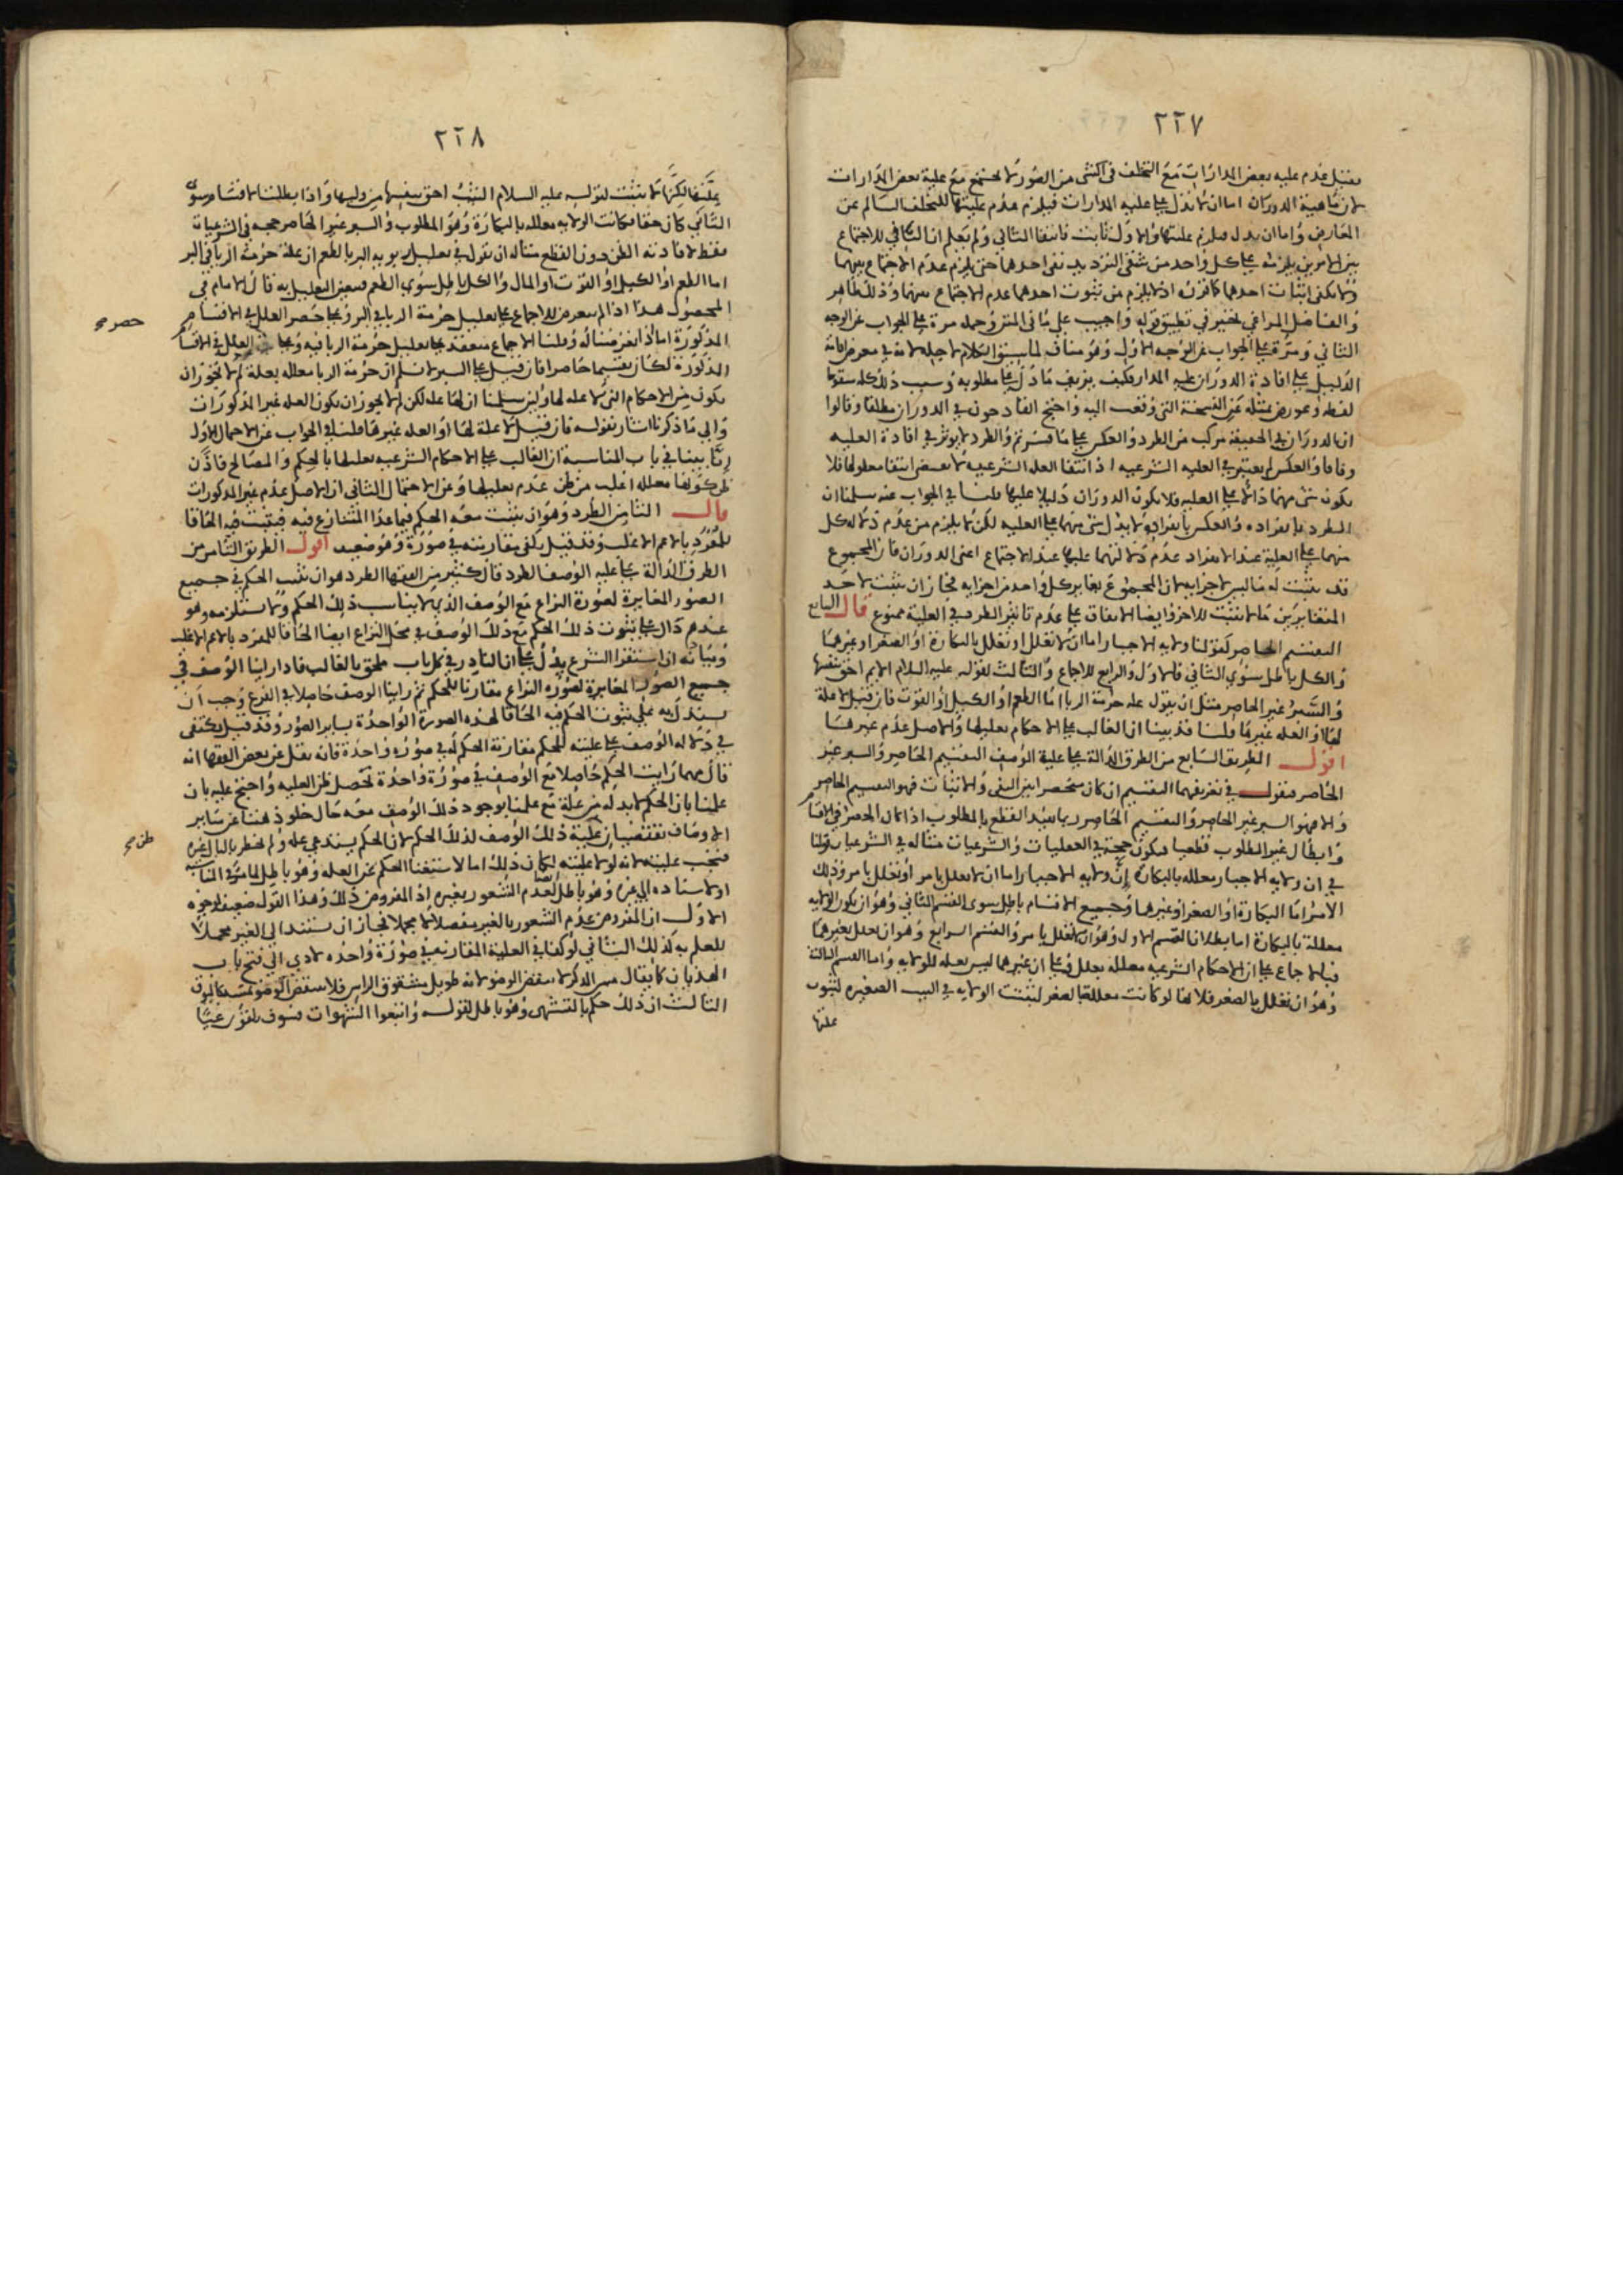 ٢٢٧
لان ماهية الدوران اما ان لا تدل على علية المدارات فيلزم عدم عليتها للتخلف السالم عن
المعارض واما ان يدل فيلزم عليتها والاول ثابت فانتفا الثاني ولم يعلم ان الثاني للاجتماع
الثاني وسرقه على الجواب عن الوجه الاول وهو مناف
الدليل على افادة الدوران علية المدار فكيف يزيف ما دل على مطلوبه وسبب ذلك كله سقوط
واحتج القادحون في الدوران مطلقا وقالوا
ان الدوران في الحقيقة مركب من الطرد والعكس على ما فسرتم والطرد لا يوثر في افادة العليه
وفاقا والعكس لم يعتبر في العليه الشرعيه اذ انتفا العله الشرعيه لا يقتضي انتفا معلولها فلا
يكون شي منهما دالا على العليه فلا يكون الدوران دليلا عليها قلنا في الجواب عنه سلمنا ان
الطرد بانفراده والعكس بانفراده لا يدل شي منهما على العليه لكن لا يلزم من عدم دلالة كل
منهما على العلية عند الانفراد عدم دلالتهما عليها عند الاجتماع اعني الدوران فان المجموع
قد يثبت له ما ليس لاجزايه لان المجموع يغاير كل واحد من اجزايه فجاز ان يثبت لاحد
المتغايرين ما لا يثبت للاخر وايضا الاتفاق على عدم تاثير الطرد في العلية ممنوع قال السابع
التقسيم الحاصر كقولنا ولايه الاجبار اما ان لا تعلل او تعلل بالبكارة او الصغر او غيرهما
والكل باطل سوي الثاني فالاول والرابع للاجماع والثالث لقوله عليه السلام الايم احق بنفسها
والسبر غير الحاصر مثل ان يقول عله حرمة الربا اما الطعم او الكيل او القوت فان قيل لا علة
لها او العله غيرها قلنا قد بينا ان الغالب على الاحكام تعليلها والاصل عدم غيرها
اقول الطريق السابع من الطرق الدالة على علية الوصف التقسيم الحاصر والسبر غير
الحاصر فنقول في تعريفهما التقسيم ان كان منحصرا بين النفي والاثبات فهو التقسيم الحاصر
والا فهو السبر غير الحاصر والتقسيم الحاصر ربما يفيد القطع بالمطلوب اذا كان الحصر في الاقسام
وابطال غير المطلوب قطعيا فيكون حجة في العقليات والشرعيات مثاله في الشرعيات قولنا
في ان ولايه الاجبار معلله بالبكارة ان ولايه الاجبار اما ان لا تعلل بامر او تعلل بامر وذلك
الامر اما البكارة او الصغر او غيرهما وجميع الاقسام باطل سوى القسم الثاني وهو ان يكون الولايه
معللة بالبكارة اما بطلان القسم الاول وهو ان لا تعلل بامر والقسم الرابع وهو ان تعلل بغيرهما
وهو ان تعلل بالصغر فلانها لو كانت معللة بالصغر لثبتت الولايه في الثيب الصغيره لثبوت
علتها
٢٢٨
علتها لكنها لا تثبت لقوله عليه السلام الثيب احق بنفسها من وليها واذا بطلت الاقسام سوى
الثاني كان حقا فكانت الولايه معلله بالبكارة وهو المطلوب والسبر غير الحاصر حجه في الشرعيات
فقط لافادته الظن دون القطع مثاله ان نقول في تعليل ربويه البر بالطعم ان علة حرمة الربا في البر
اما الطعم او الكيل او القوت او المال والكل باطل سوي الطعم فتعين التعليل به قال الامام في
المحصول هذا اذا لم نتعرض للاجماع على تعليل حرمة الربا في البر وعلى حصر العلل في الاقسام
حصر صح
المذكورة اما اذا تعرضنا له وقلنا الاجماع منعقد على تعليل حرمة الربا فيه وعلى العلل في الاقسام
المذكورة لكان تقسيما حاصرا فان قيل على السبر لا نسلم ان حرمة الربا معلله بعلة لم لا يجوز ان
يكون من الاحكام التي لا عله لها ولئن سلمنا ان لها عله لكن لم لا يجوز ان يكون العله غير المذكورات
والي ما ذكرنا اشار بقوله فان قيل لا علة لها او العله غيرها قلنا في الجواب عن الاحتمال الاول
انا بينا في باب المناسبة ان الغالب على الاحكام الشرعيه تعليلها بالحكم والمصالح فاذن
ظن كونها معلله اغلب من ظن عدم تعليلها وعن الاحتمال الثاني ان الاصل عدم غير المذكورات
قال الثامن الطرد وهو ان يثبت معه الحكم فيما عدا المتنازع فيه فيثبت فيه الحاقا
للمفرد بالاعم الاغلب وقد قيل يكفي مقارنته في صورة وهو ضعيف اقول الطريق الثامن من
الطرق الدالة على علية الوصف الطرد قال كثير من الفقها الطرد هو ان يثبت الحكم في جميع
الصور المغايرة لصورة النزاع مع الوصف الذي لا يناسب ذلك الحكم ولا استلزمه وهو
عندهم دال على ثبوت ذلك الحكم مع ذلك الوصف في محل النزاع ايضا الحاقا للمفرد بالاعم الاغلب
وبيانه ان استقرا الشرع يدل على ان النادر في كل باب ملحق بالغالب فاذا راينا الوصف في
جميع الصور المغايرة لصوره النزاع مقارنا للحكم ثم راينا الوصف حاصلا في الفرع وجب ان
يستدل به على ثبوت الحكم فيه الحاقا لهذه الصورة الواحدة بساير الصور وقد قيل يكتفى
في دلاله الوصف على عليته للحكم مقارنة الحكم له في صوره واحدة فانه نقل عن بعض الفقها انه
قال مهما رايت الحكم حاصلا مع الوصف في صورة واحدة تحصل ظن العليه واحتج عليه بان
علمنا بان الحكم لا بد له من علة مع علمنا بوجود ذلك الوصف معه حال خلو ذهننا عن ساير
الاوصاف يقتضيان علية ذلك الوصف لذلك الحكم لان الحكم يستدعي عله ولم يخطر بالبال غيره
ظن صح
فيجب عليته لانه لولا عليته لكان ذلك اما لاستغنا الحكم عن العله وهو باطل لما مر في المناسبه
او لاستناده الى غيره وهو باطل ايضا لعدم الشعور بغيره اذ المفروض ذلك وهذا القول ضعيف لوجوه
الاول ان المفروض عدم الشعور بالغير مفصلا لا مجملا فجاز ان يستند الى الغير مجملا
للعلم به كذلك الثاني لو كفا في العلية المقارنة في صورة واحده لادي الى فتح باب
الهذيان كما يقال مس الذكر لا ينقض الوضو لانه طويل مشقوق الراس فلا ينقض الوضو بمسه كالبوق
الثالث ان ذلك حكم بالتشهى وهو باطل لقوله واتبعوا الشهوات فسوف يلقون غيا